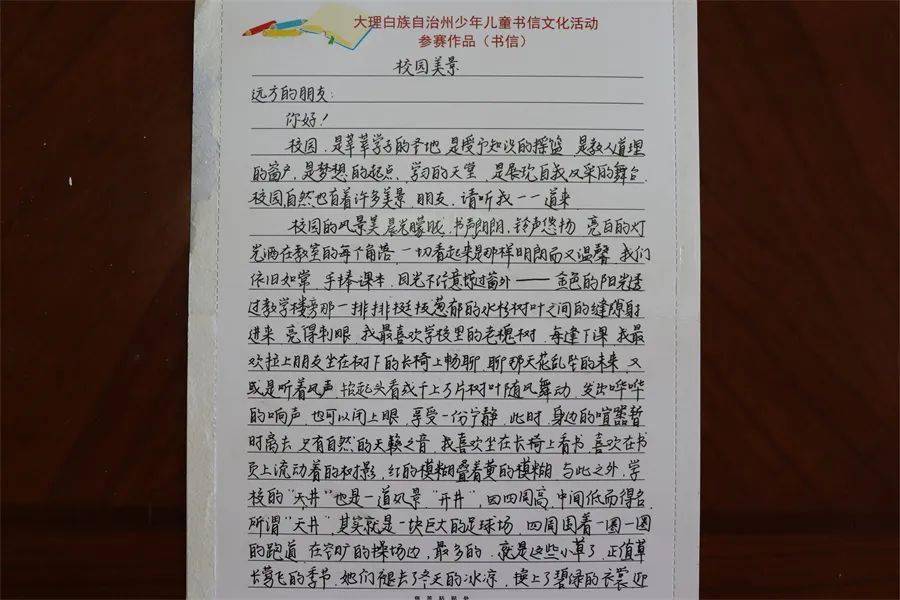 大理白族自治州少年儿童书信文化活动
参赛作品（书信）
校园美景
远方的朋友：
你好！
校园，是莘莘学子的圣地，是授予知识的摇篮，是教人道理
的窗户，是梦想的起点，学习的天堂，是展现自我风采的舞台，
校园自然也有着许多美景，朋友，请听我一一道来
校园的风景美，晨光朦胧，书声朗朗，铃声悠扬，亮白的灯
光洒在教室的每个角落，一切看起来是那样明朗而又温馨，我们
依旧如常，手捧课本，目光不经意掠过窗外——金色的阳光透
过教学楼旁那一排排挺拔葱郁的水杉树叶之间的缝隙射
进来，亮得刺眼，我最喜欢学校里的老槐树，每逢下课，我最
欢拉上朋友坐在树下的长椅上畅聊，聊那天花乱坠的未来，又
或是听着风声，抬起头看成千上万片树叶随风舞动，发出哗哗
的响声，也可以闭上眼，享受一份宁静，此时，身边的喧嚣暂
时离去，只有自然的天籁之音，我喜欢坐在长椅上看书，喜欢在书
页上流动着的树影，红的模糊叠着黄的模糊，与此之外，学
校的“天井”也是一道风景，“开井”，因四周高，中间低而得名，
所谓“天井”，其实就是一块巨大的足球场，四周围着一圈一圈
的跑道，在空旷的操场边，最多的，就是这些小草了，正值草
长莺飞的季节，她们褪去了冬天的冰凉，换上了碧绿的衣裳，迎